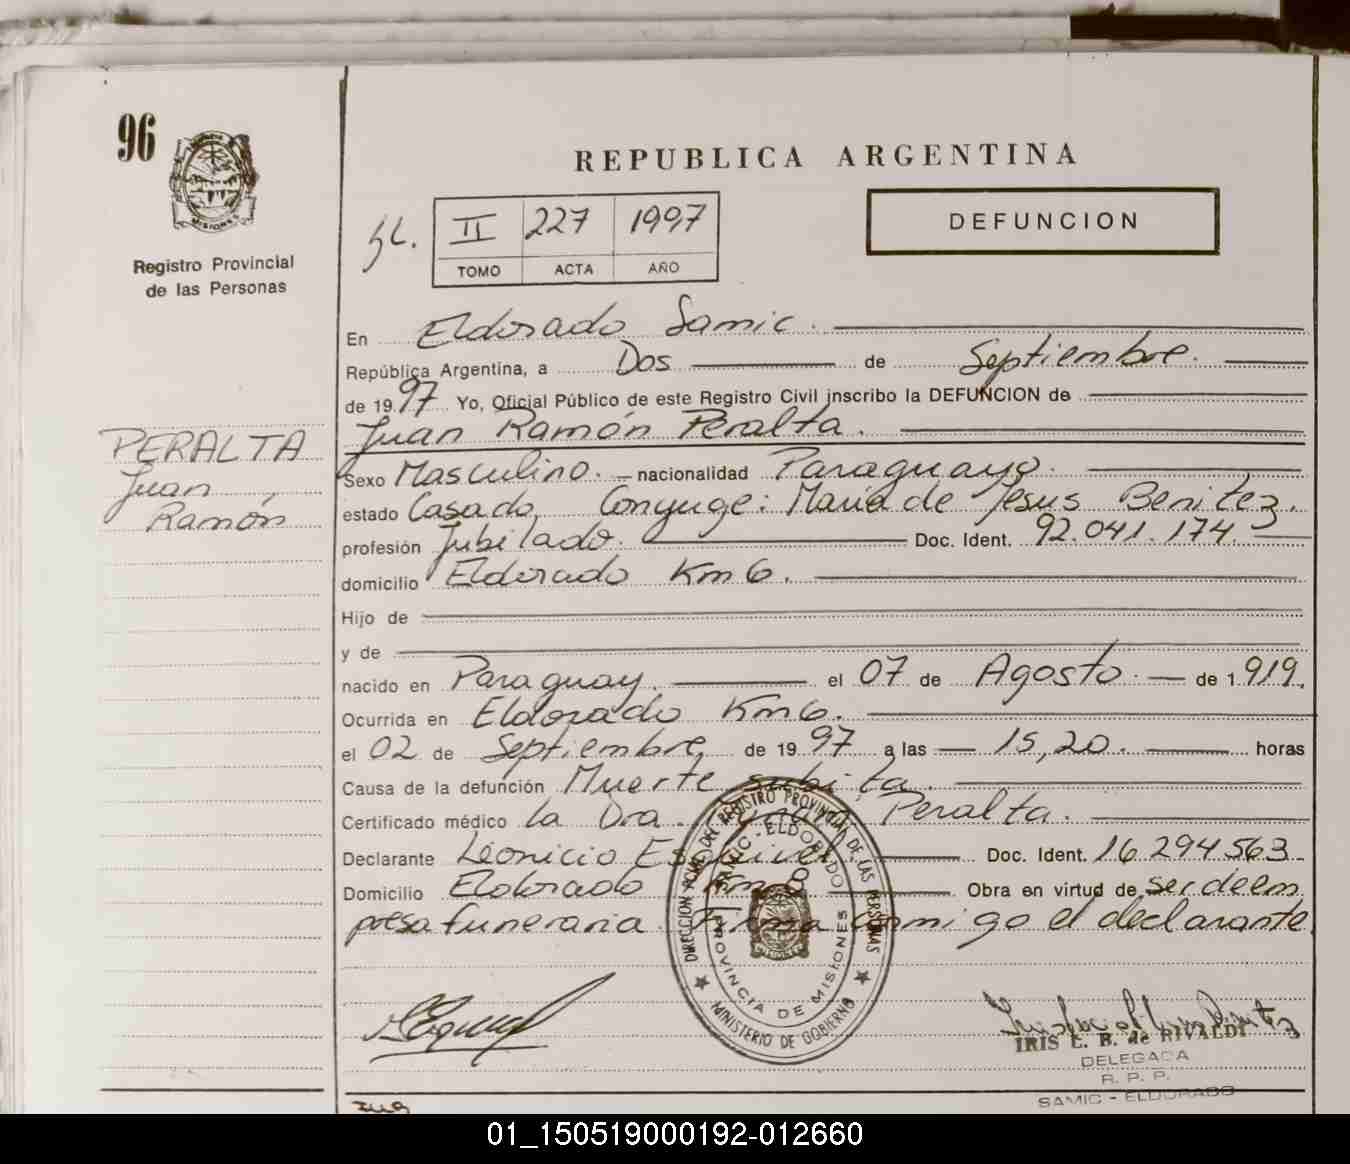 96
MISIONES
Registro Provincial
de las Personas
PERALTA
Juan
Ramón
REPUBLICA ARGENTINA
II 227 1997
TOMO ACTA AÑO
DEFUNCION
En Eldorado Samic.
República Argentina, a Dos de Septiembre.
de 1997 Yo, Oficial Público de este Registro Civil inscribo la DEFUNCION de
Juan Ramón Peralta.
Sexo Masculino. nacionalidad Paraguayo.
estado Casado Conyuge: Maria de Jesus Benitez.
profesión Jubilado. Doc. Ident. 92.041.174.
domicilio Eldorado Km 6.
Hijo de
y de
nacido en Paraguay. el 07 de Agosto. de 1.919.
Ocurrida en Eldorado Km 6.
el 02 de Septiembre de 1997 a las 15,20. horas
Causa de la defunción Muerte subita.
Certificado médico la Dra. Peralta.
Declarante Leonicio Esquivel Doc. Ident. 16.294.563
Domicilio Eldorado Km 8 Obra en virtud de ser de em
presa funeraria. Firma conmigo el declarante
DIRECCION PCIAL. DEL REGISTRO PROVINCIAL DE LAS PERSONAS
SAMIC - ELDORADO
PROVINCIA DE MISIONES
MINISTERIO DE GOBIERNO
IRIS E. B. de RIVALDI
DELEGADA
R. P. P.
SAMIC - ELDORADO
01_150519000192-012660